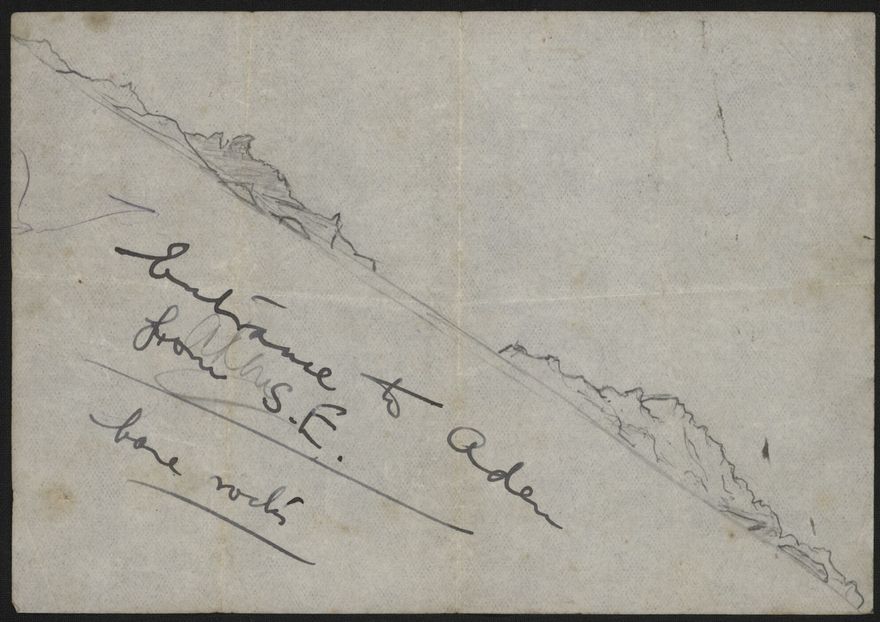 Entrance to Aden
from S.E.
bare rocks